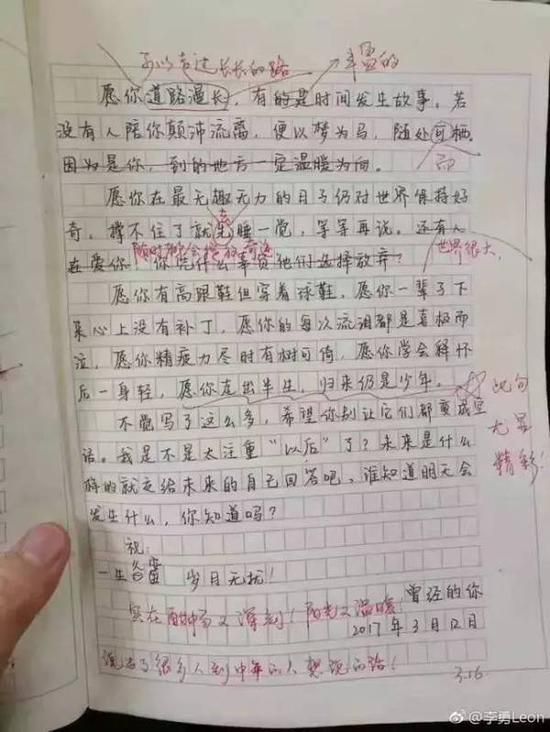 可以走过长长的路
丰盈的
愿你道路漫长,有的是时间发生故事。若
没有人陪你颠沛流离,便以梦为马,随处可栖。
而
因为是你,到的地方一定温暖为向。
愿你在最无趣无力的日子仍对世界保持好
奇,撑不住了就先睡一觉,等等再说。还有人
随时都会
世界很大
在爱你,你凭什么辜负他们选择放弃?
愿你有高跟鞋但穿着球鞋,愿你一辈子下
来心上没有补丁,愿你的每次流泪都是喜极而
泣,愿你精疲力尽时有树可倚,愿你学会释怀
后一身轻,愿你走出半生,归来仍是少年。
此句
尤显
精彩!
不觉写了这么多,希望你别让它们都变成空
话。我是不是太注重“以后”了?未来是什么
样的就交给未来的自己回答吧,谁知道明天会
发生什么,你知道吗?
祝:
一生 岁月无扰!
曾经的你
实在酣畅又深刻!阳光又温暖
2017年3月12日
说出了很多人到中年的人想说的话!
3.16
@李勇Leon